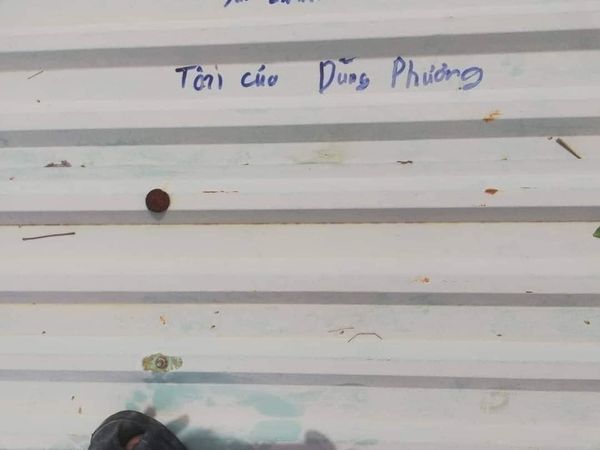 Tôn của Dũng Phương